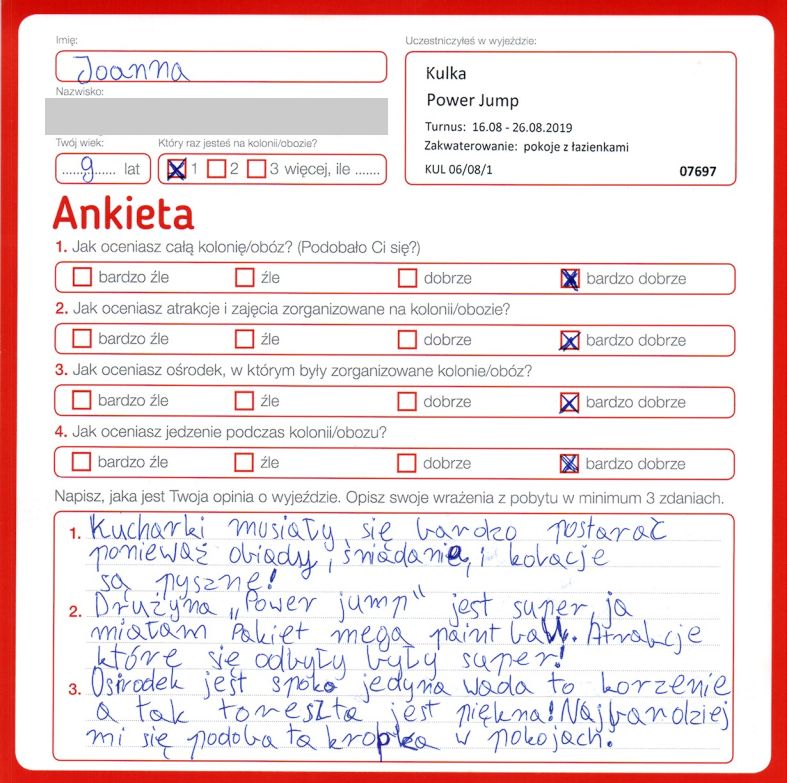 Imię:
Joanna
Nazwisko:
Twój wiek:
Który raz jesteś na kolonii/obozie?
9 lat
1 2 3 więcej, ile .......
Uczestniczyłeś w wyjeździe:
Kulka
Power Jump
Turnus: 16.08 - 26.08.2019
Zakwaterowanie: pokoje z łazienkami
KUL 06/08/1 07697
Ankieta
1. Jak oceniasz całą kolonię/obóz? (Podobało Ci się?)
bardzo źle źle dobrze bardzo dobrze
2. Jak oceniasz atrakcje i zajęcia zorganizowane na kolonii/obozie?
bardzo źle źle dobrze bardzo dobrze
3. Jak oceniasz ośrodek, w którym były zorganizowane kolonie/obóz?
bardzo źle źle dobrze bardzo dobrze
4. Jak oceniasz jedzenie podczas kolonii/obozu?
bardzo źle źle dobrze bardzo dobrze
Napisz, jaka jest Twoja opinia o wyjeździe. Opisz swoje wrażenia z pobytu w minimum 3 zdaniach.
1. Kucharki musiały się bardzo postarać
ponieważ obiady, śniadania, i kolacje
są pyszne!
2. Drużyna „Power jump" jest super, ja
miałam Pakiet mega paint ball. Atrakcje
które się odbyły były super!
3. Ośrodek jest spoko jedyna wada to korzenie
a tak toreszta jest piękna! Najbardziej
mi się podoba ta kropka w pokojach.